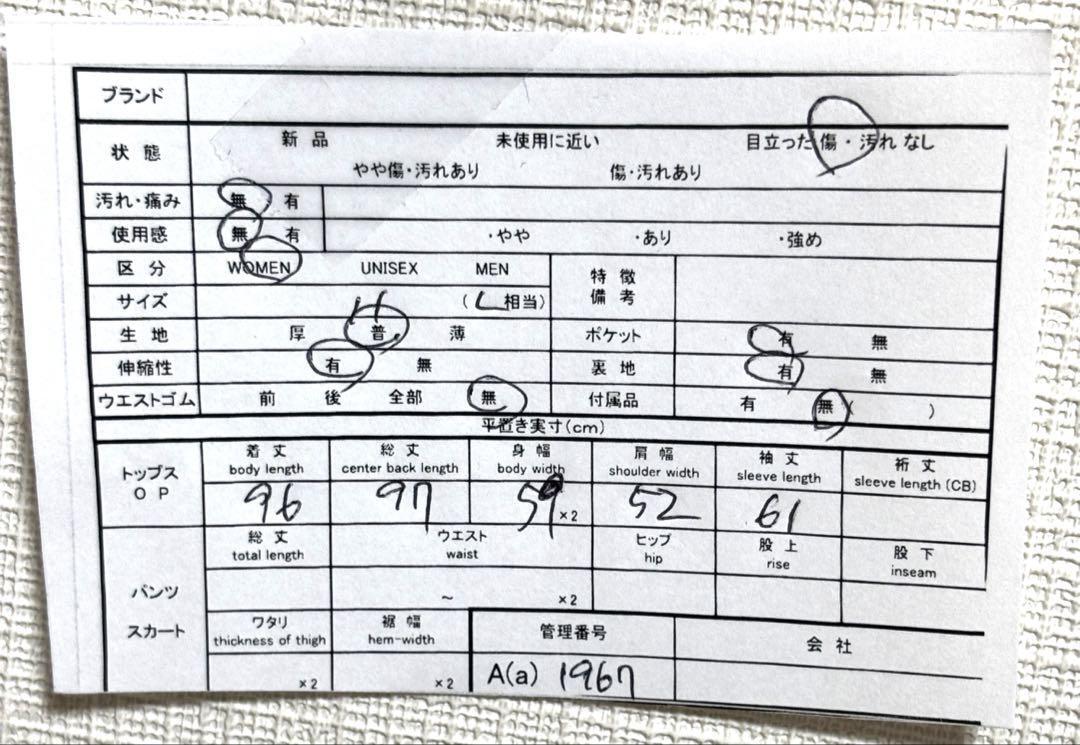 ブランド
状態 新品 未使用に近い 目立った傷・汚れなし
やや傷・汚れあり 傷・汚れあり
汚れ・痛み 無 有
使用感 無 有 ・やや ・あり ・強め
区分 WOMEN UNISEX MEN 特徴
備考
サイズ (L相当)
生地 厚 普 薄 ポケット 有 無
伸縮性 有 無 裏地 有 無
ウエストゴム 前 後 全部 無 付属品 有 無( )
平置き実寸(cm)
トップス
OP
着丈 総丈 身幅 肩幅 袖丈 裄丈
body length center back length body width shoulder width sleeve length sleeve length (CB)
96 97 59 ×2 52 61
パンツ
スカート
総丈 ウエスト ヒップ 股上 股下
total length waist hip rise inseam
~ ×2
ワタリ 裾幅 管理番号 会社
thickness of thigh hem-width
×2 ×2 A(a) 1967